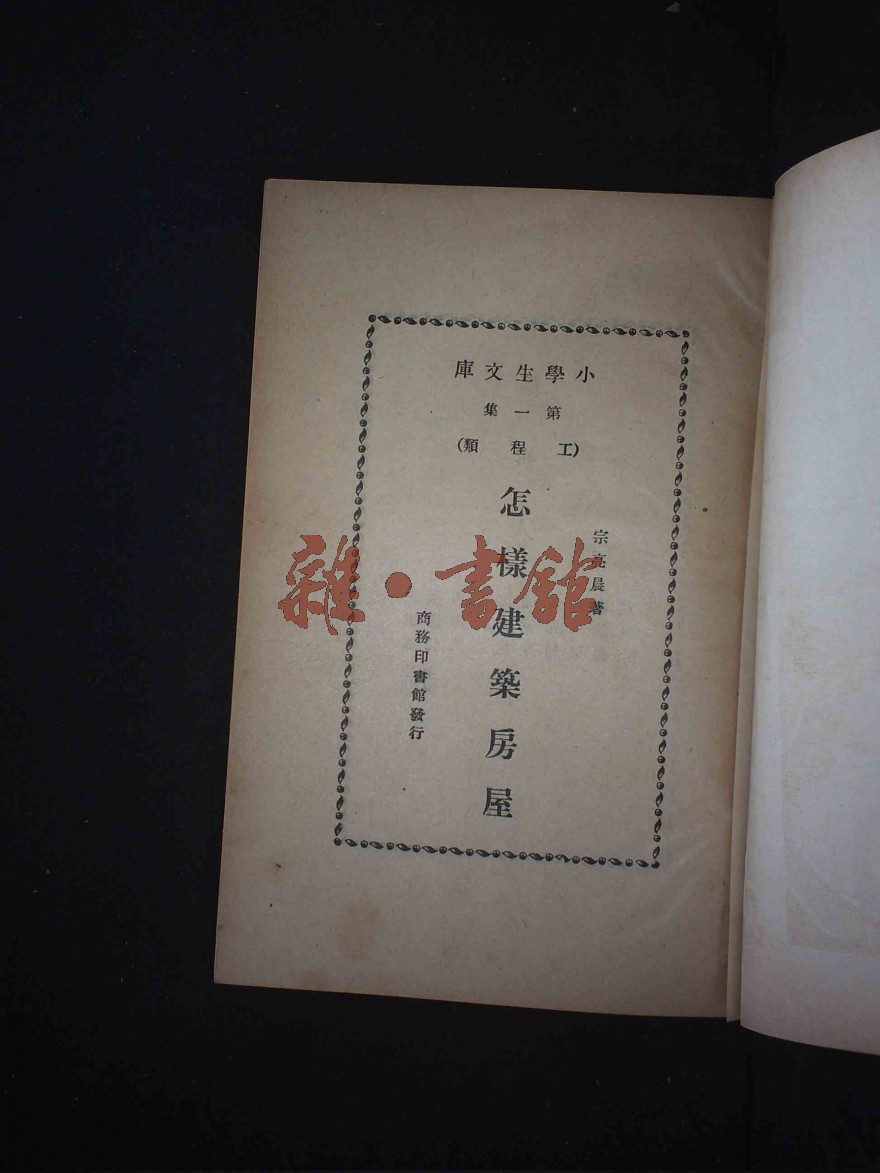 小學生文庫
第一集
(工程類)
宗亮晨著
怎樣建築房屋
商務印書館發行
雜·書館